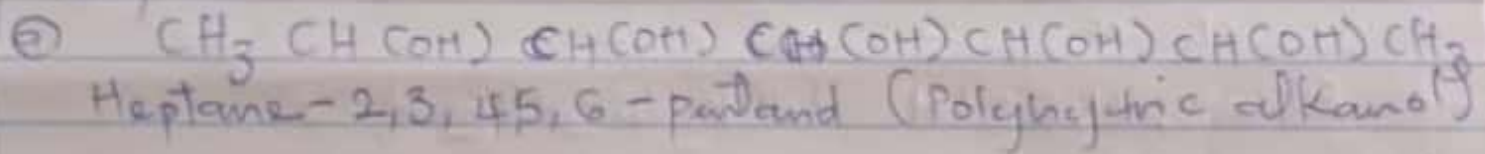 e) CH3 CH (OH) CH(OH) CH (OH) CH(OH) CH(OH) CH3
Heptane-2,3,45,6-pentanol (Polyhydric alkanol)